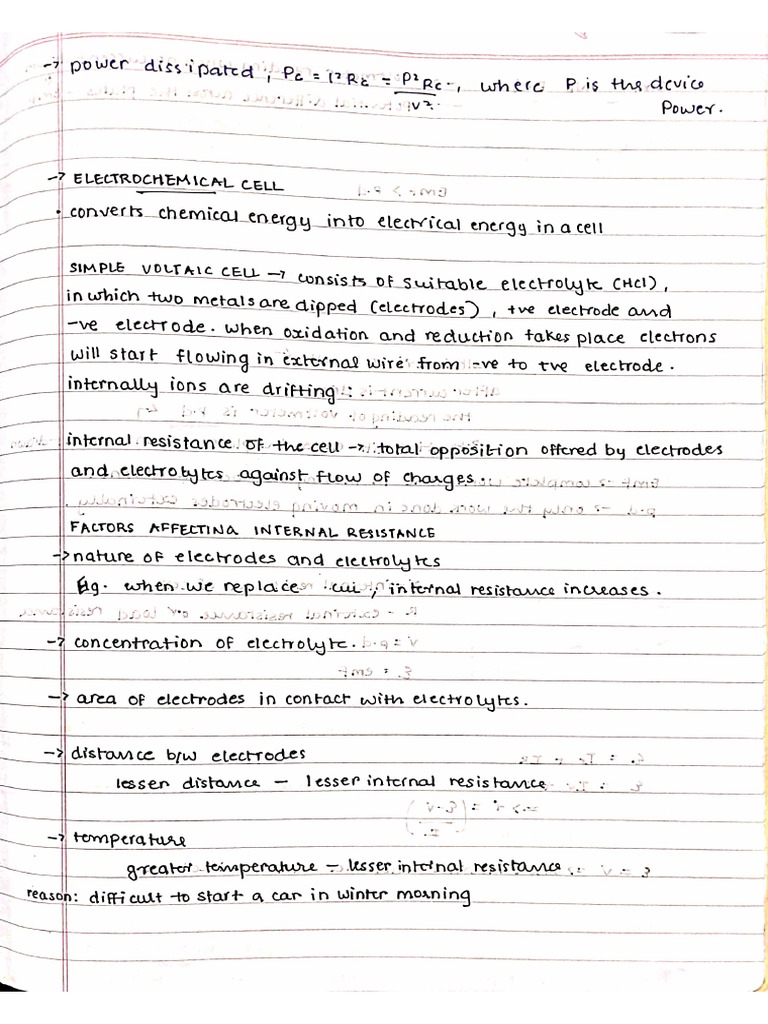 → power dissipated, Pc = I²Rc = P²Rc/V², where P is the device
Power.
→ ELECTROCHEMICAL CELL
• converts chemical energy into electrical energy in a cell
SIMPLE VOLTAIC CELL → consists of suitable electrolyte (HCl),
in which two metals are dipped (electrodes), +ve electrode and
-ve electrode. when oxidation and reduction takes place electrons
will start flowing in external wire from -ve to +ve electrode.
internally ions are drifting.
internal resistance of the cell → total opposition offered by electrodes
and electrolytes against flow of charges.
FACTORS AFFECTING INTERNAL RESISTANCE
→ nature of electrodes and electrolytes
Eg. when we replace , internal resistance increases.
→ concentration of electrolyte.
→ area of electrodes in contact with electrolytes.
→ distance b/w electrodes
lesser distance - lesser internal resistance
→ temperature
greater temperature - lesser internal resistance
reason: difficult to start a car in winter morning